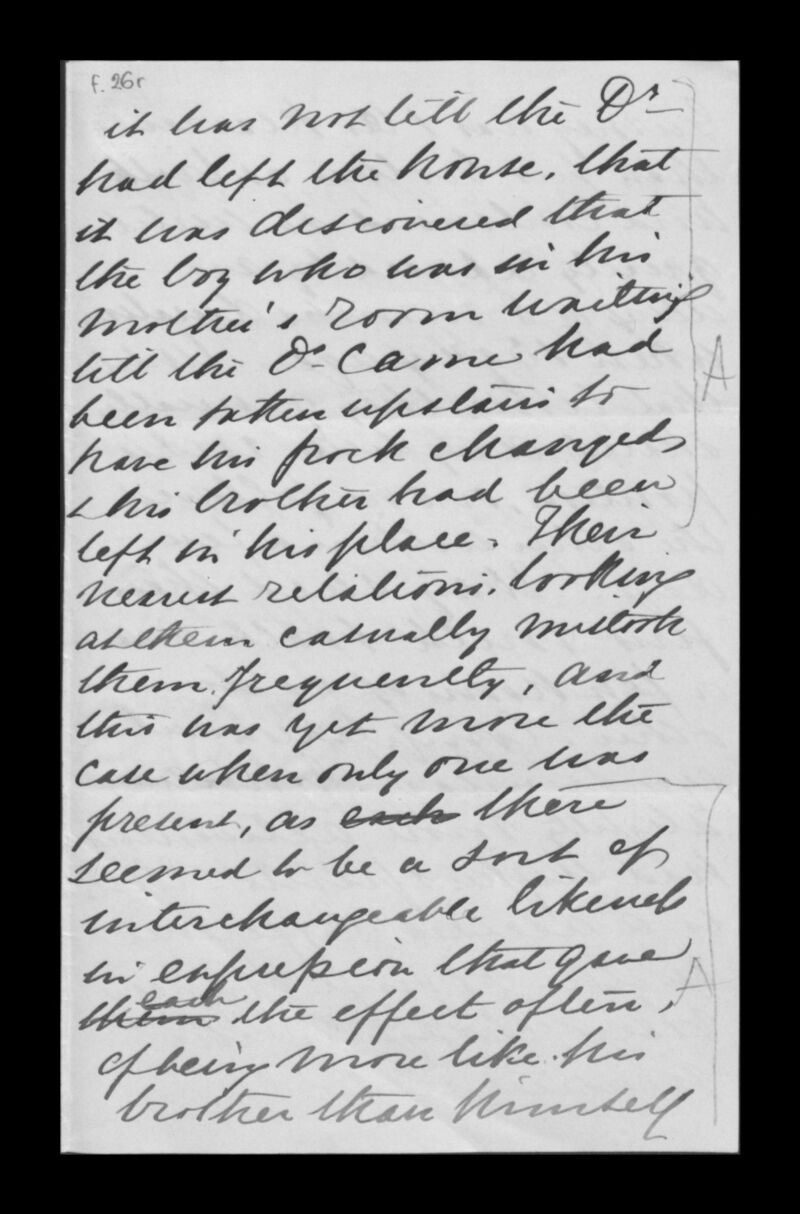 f. 26r
it was not till the Dr
had left the house, that
it was discovered that
the boy who was in his
mother's room waiting
till the Dr came had
been taken upstairs to
have his frock changed
& his brother had been
left in his place. Their
nearest relations, looking
at them casually mistook
them frequently, and
this was yet more the
case when only one was
present, as each there
seemed to be a sort of
interchangeable likeness
in expression that gave
each
them the effect often,
of being more like his
brother than himself
A
A